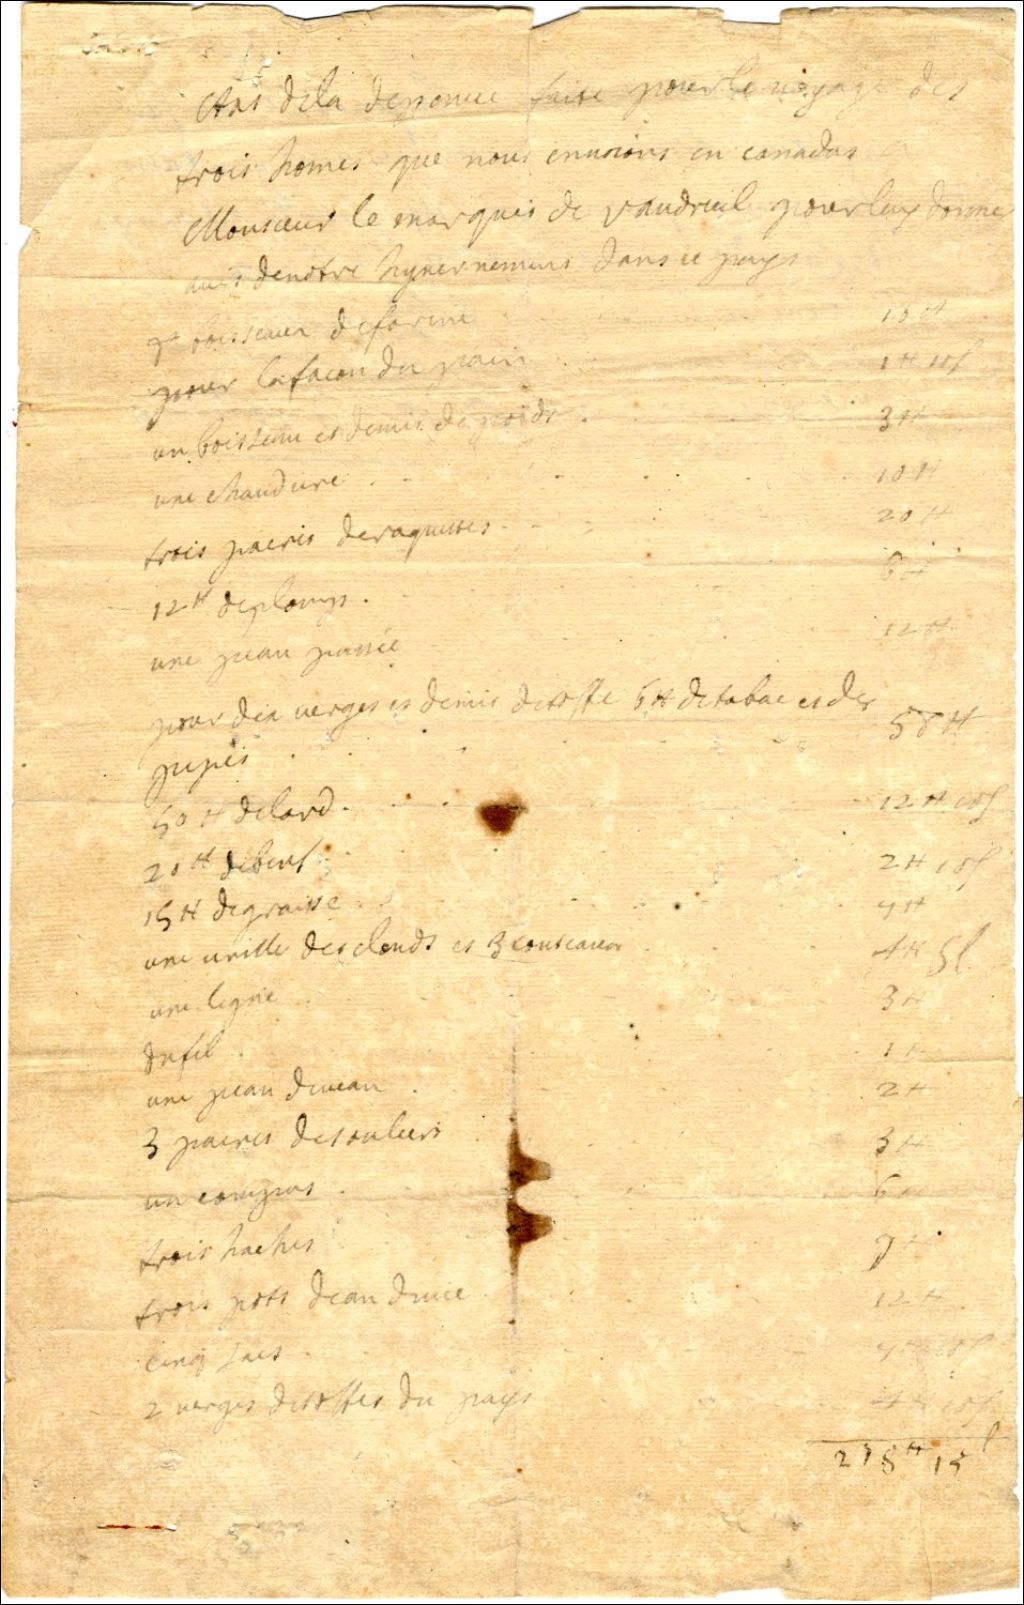 Etat dela depence faite pour le voyage des
trois homes que nous envoions en canadas
Monsieur le marquis de vaudreuil pour luy donner
avis denotre hyvernement dans ce pays
boisseaux de farine 10 ₶
pour la facon du pain 1 ₶ 10ſ
un boisseau et demis de poids 3 ₶
une chaudiere 10 ₶
trois paeris deraquettes 20 ₶
12 ₶ deplomp 6 ₶
une peau passée 12 ₶
pour dix verges et demis detoffe 6 ₶ detabac et des
pipes 58 ₶
50 ₶ delard 12 ₶ 10ſ
20 ₶ debeuf 2 ₶ 10ſ
15 ₶ degraisse
une vrille des clouds et 3 couteaux 4 ₶ 5ſ
une ligne 3 ₶
du fil 1 ₶
une peau deveau 2 ₶
3 paeres desouliers 3 ₶
un compas 6 ₶
trois haches
trois pots deau devie 12 ₶
cinq sacs
2 verges detoffes du pays 4 ₶ 10ſ
₶ 15ſ